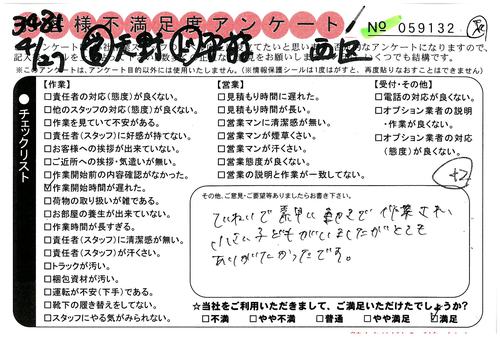 3931
様不満足度アンケート
№ 059132
4/27
天野
西区
※このアンケートは、アンケート目的以外には使用いたしません。(※情報保護シールは1度はがすと、再度貼りなおすことはできません)
●チェックリスト
【作業】
□責任者の対応(態度)が良くない。
□他のスタッフの対応(態度)が良くない。
□作業を見ていて不安がある。
□責任者(スタッフ)に好感が持てない。
□お客様への挨拶が出来ていない。
□ご近所への挨拶・気遣いが無い。
□作業開始前の内容確認がなかった。
☑作業開始時間が遅れた。
□荷物の取り扱いが雑である。
□お部屋の養生が出来ていない。
□作業時間が長すぎる。
□責任者(スタッフ)に清潔感が無い。
□責任者(スタッフ)が汗くさい。
□トラックが汚い。
□梱包資材が汚い。
□運転が不安(下手)である。
□靴下の履き替えをしてない。
□スタッフにやる気がみられない。
【営業】
□見積もり時間に遅れた。
□見積もり時間が長い。
□営業マンに清潔感が無い。
□営業マンが煙草くさい。
□営業マンが汗くさい。
□営業態度が良くない。
□営業の説明と作業が一致してない。
【受付・その他】
□電話の対応が良くない。
□オプション業者の説明
・作業が良くない。
□オプション業者の対応
(態度)が良くない。
+2
その他、ご意見・ご要望等ありましたらお書き下さい。
ていねいで素早い動きで作業され、
小さい子どもがいましたがとても
ありがたかったです。
☆当社をご利用いただきまして、ご満足いただけたでしょうか?
□不満 □やや不満 □普通 □やや満足 ☑満足